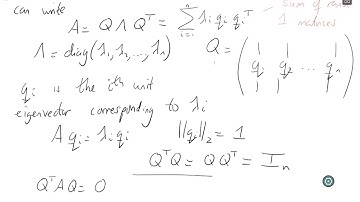 can write A = Q Λ Qᵀ = Σᵢ₌₁ⁿ λᵢ qᵢ qᵢᵀ sum of rank
1 matrices
Λ = diag(λ₁, λ₂, ..., λₙ) Q = ( q₁ q₂ ... qₙ )
qᵢ is the ith unit
eigenvector corresponding to λᵢ
A qᵢ = λᵢ qᵢ ||qᵢ||₂ = 1
QᵀQ = QQᵀ = Iₙ
QᵀAQ = 0